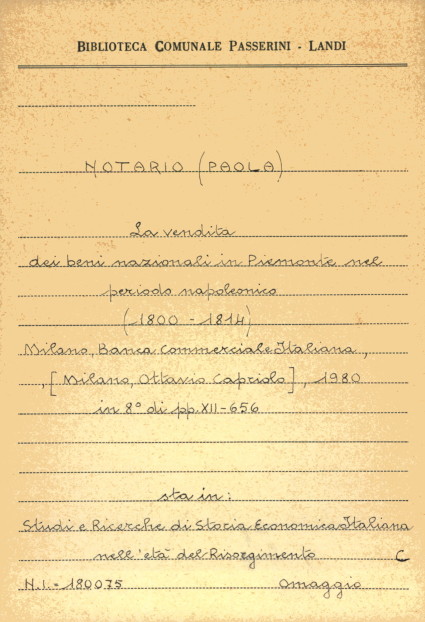 BIBLIOTECA COMUNALE PASSERINI - LANDI
NOTARIO (PAOLA)
La vendita
dei beni nazionali in Piemonte nel
periodo napoleonico
(1800 - 1814)
Milano, Banca Commerciale Italiana,
, [Milano, Ottavio Capriolo], 1980
in 8° di pp. XII-656
sta in:
Studi e Ricerche di Storia Economica Italiana
nell'età del Risorgimento C
N.I. - 180075 Omaggio